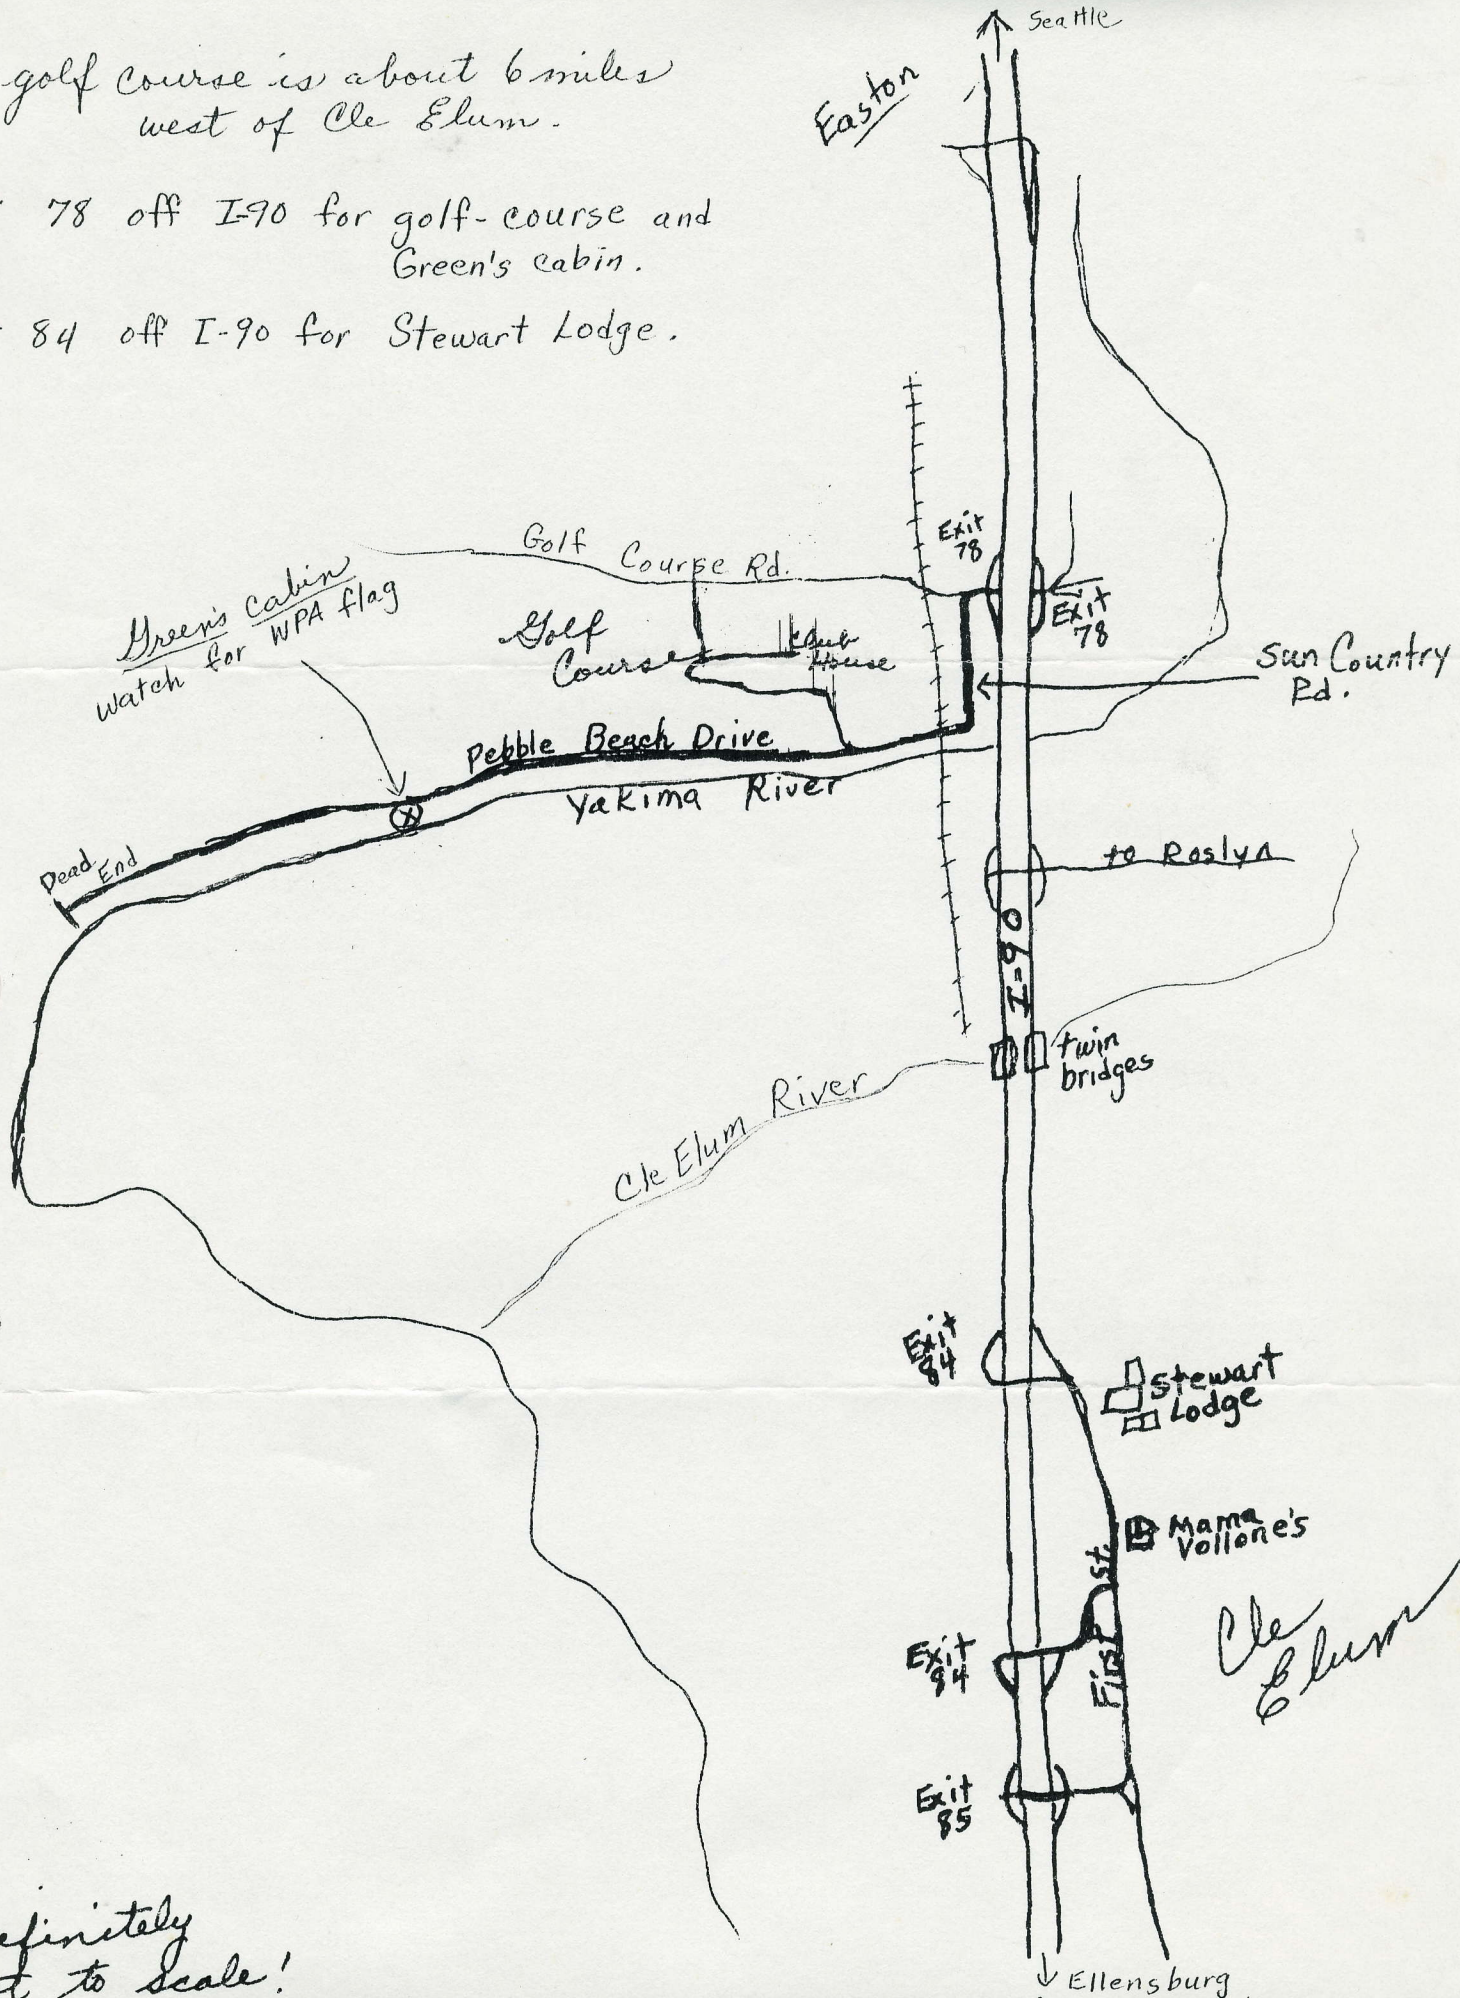 golf course is about 6 miles
west of Cle Elum.
78 off I-90 for golf-course and
Green's cabin.
84 off I-90 for Stewart Lodge.
Seattle
Easton
Exit
78
Exit
78
Golf Course Rd.
Green's cabin
watch for WPA flag
Golf
Course
Club
House
Sun Country
Rd.
Pebble Beach Drive
Yakima River
Dead End
to Roslyn
I-90
twin
bridges
Cle Elum River
Exit
84
Stewart
Lodge
Mama
Vollone's
First St.
Cle
Elum
Exit
84
Exit
85
efinitely
t to scale!
Ellensburg